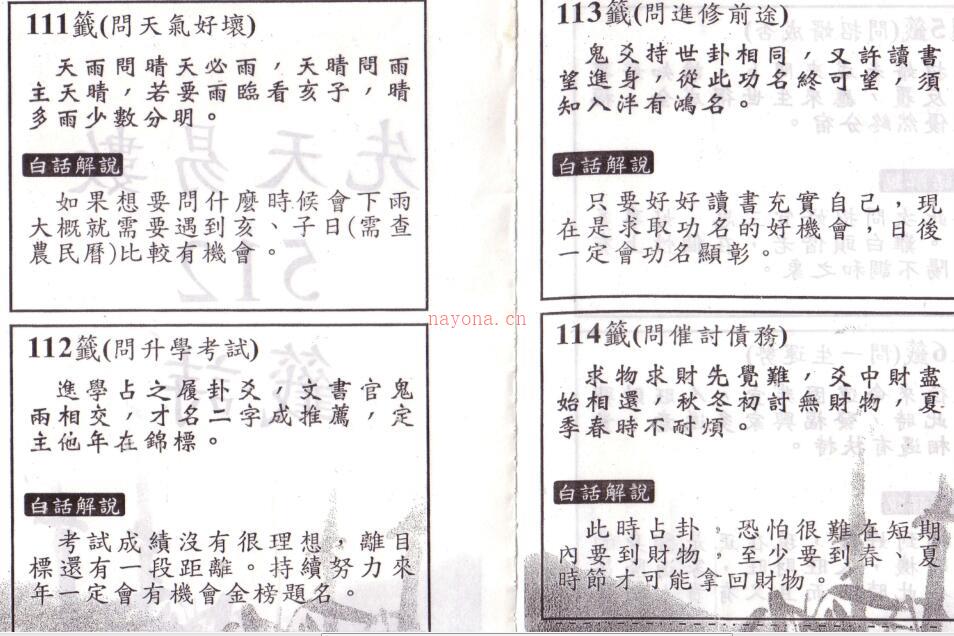 111籤(問天氣好壞)
天雨問晴天必雨，天晴問雨
主天晴，若要雨臨看亥子，晴
多雨少數分明。
白話解說
如果想要問什麼時候會下雨
大概就需要遇到亥、子日(需查
農民曆)比較有機會。
112籤(問升學考試)
進學占之履卦爻，文書官鬼
兩相交，才名二字成推薦，定
主他年在錦標。
白話解說
考試成績沒有很理想，離目
標還有一段距離。持續努力來
年一定會有機會金榜題名。
113籤(問進修前途)
鬼爻持世卦相同，又許讀書
望進身，從此功名終可望，須
知入泮有鴻名。
白話解說
只要好好讀書充實自己，現
在是求取功名的好機會，日後
一定會功名顯彰。
114籤(問催討債務)
求物求財先覺難，爻中財盡
始相還，秋冬初討無財物，夏
季春時不耐煩。
白話解說
此時占卦，恐怕很難在短期
內要到財物，至少要到春、夏
時節才可能拿回財物。
nayona.cn
先天易數
512
籤詩